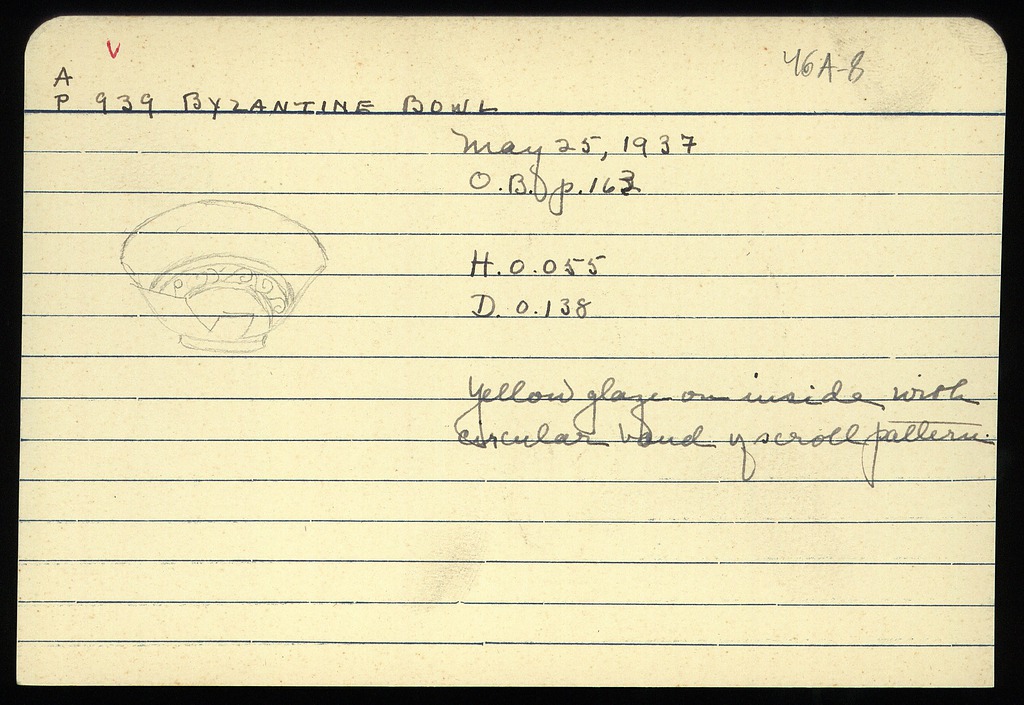 V
46A-8
A
P 939 BYZANTINE BOWL
May 25, 1937
O.B. p. 163
H. 0.055
D. 0.138
Yellow glaze on inside with
circular band of scroll pattern.